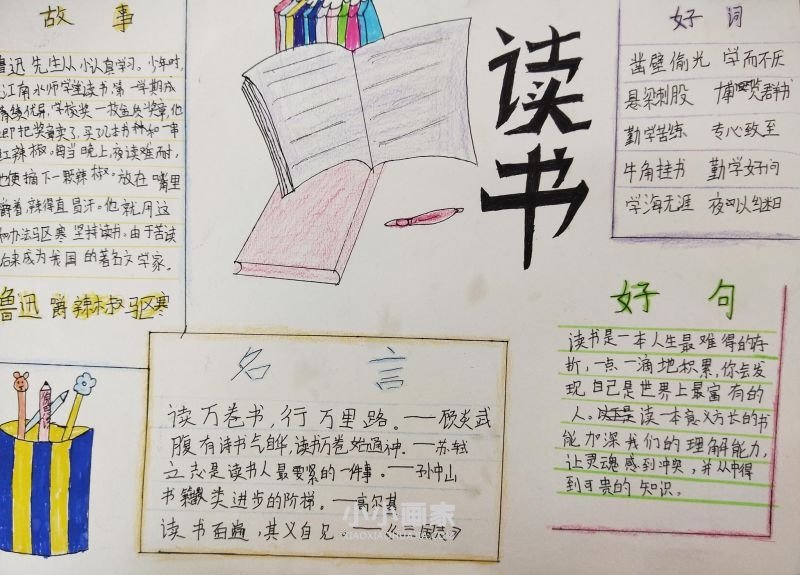 故 事
鲁迅先生从小认真学习。少年时,
江南水师学堂读书,第一学期成
绩优异,学校奖一枚金质奖章,他
即把奖章卖了,买几本书和一串
红辣椒。每当晚上,夜读难耐,
他便摘下一颗辣椒。放在嘴里
嚼着,辣得直冒汗。他就用这
种办法驱寒坚持读书。由于苦读
后来成为我国的著名文学家。
鲁迅嚼辣椒驱寒
读书
好 词
凿壁偷光 学而不厌
悬梁刺股 博览群书
勤学苦练 专心致至
牛角挂书 勤学好问
学海无涯 夜以继日
名 言
读万卷书,行万里路。——顾炎武
腹有诗书气自华,读书万卷始通神。——苏轼
立志是读书人最要紧的一件事。——孙中山
书籍是人类进步的阶梯。——高尔基
读书百遍,其义自见——《三国志》
好 句
读书是一本人生最难得的存
折,一点一滴地积累,你会发
现自己是世界上最富有的
人。读一本意义方长的书
能加深我们的理解能力,
让灵魂感到冲突,并从中得
到可贵的知识。
小小画家
XIAOXIAOHUAJIA.COM